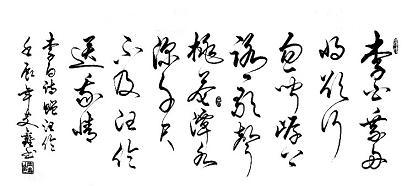 李白乘舟
將欲行
忽聞岸上
踏歌聲
桃花潭水
深千尺
不及汪倫
送我情
李白詩贈汪倫
壬辰年